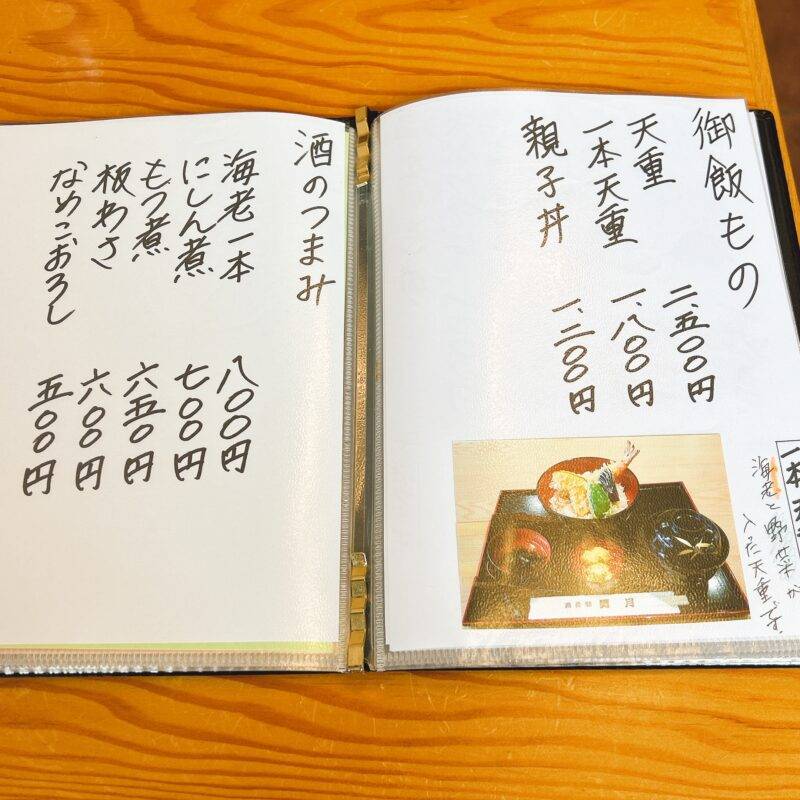 御飯もの
天重 二、五〇〇円
一本天重 一、八〇〇円
親子丼 一、二〇〇円
海老と野菜が
入った天重です。
酒のつまみ
海老一本 八〇〇円
にしん煮 七〇〇円
もつ煮 六五〇円
板わさ 六〇〇円
なめこおろし 五〇〇円